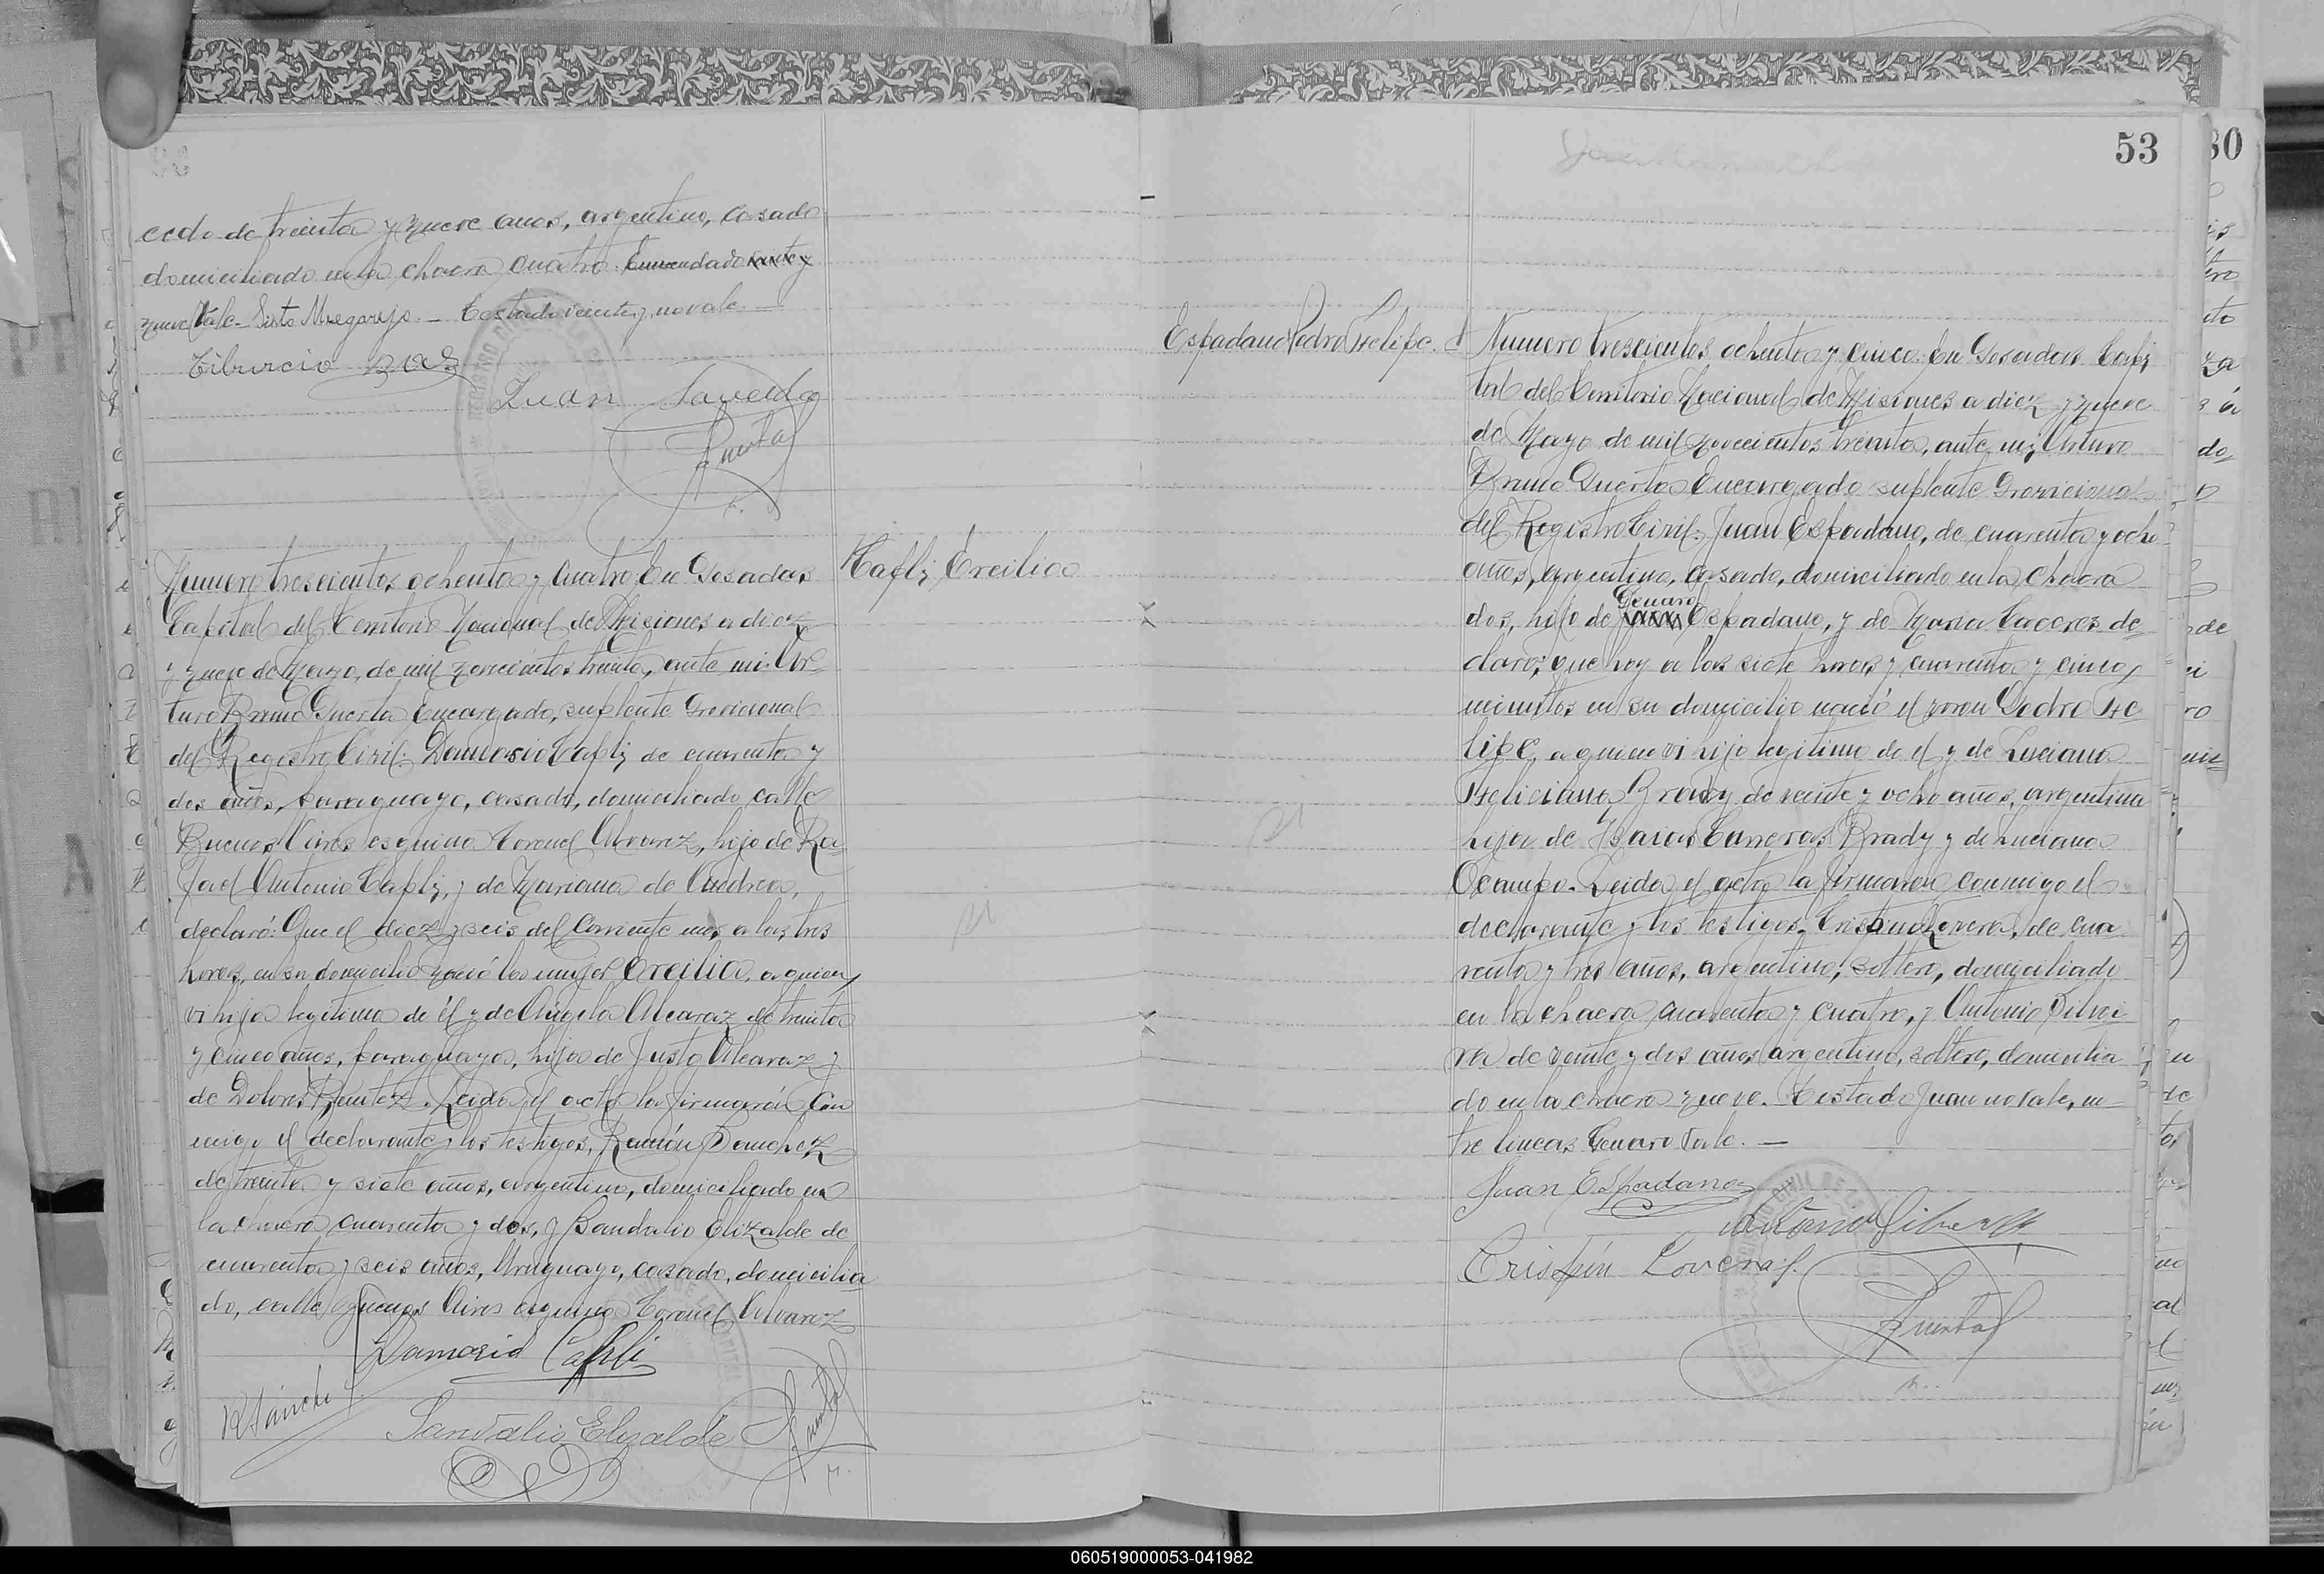 cedo de treinta y nueve años, argentino, casado
domiciliado en la chacra cuatro. Enmendado
nueve Vale. Sixto Melgarejo.— Testado veinte y no vale.—
Tiburcio Diaz
Juan Saucedo
Puerta
Numero trescientos ochenta y cuatro. En Posadas
Cafli, Ercilia
Capital del Territorio Nacional de Misiones a diez
y nueve de Mayo, de mil novecientos treinta, ante mi Ar-
turo Bruno Puerta Encargado, suplente Provicional
del Registro Civil: Damasio Cafli, de cuarenta y
dos años, paraguayo, casado, domiciliado calle
Buenos Aires esquina Coronel Alvarez, hijo de Ra-
fael Antonio Cafli, y de Mariana de Andrea,
declaró: Que el diez y seis del corriente mes a las tres
horas, en su domicilio nació la mujer Ercilia, a quien
vi hija legitima de él y de Angela Alcaraz de treinta
y cinco años, paraguaya, hija de Justo Alcaraz y
de Dolores Benitez. Leida el acta la firmarón con
migo el declarante y los testigos, Ramón Sanchez
de treinta y siete años, argentino, domiciliado en
la chacra cuarenta y dos, y Sandalio Elizalde de
cuarenta y seis años, Uruguayo, casado, domicilia
do, calle Buenos Aires esquina Coronel Alvarez
Damasio Cafli
R Sánchez
Sandalio Elizalde
Puerta
53
Espadano Pedro Felipe.
Numero trescientos ochenta y cinco. En Posadas Capi
tal del Territorio Nacional de Misiones a diez y nueve
de Mayo de mil novecientos treinta, ante mi, Arturo
Bruno Puerta Encargado suplente Provicional
del Registro Civil: Juan Espadano, de cuarenta y ocho
años, argentino, casado, domiciliado en la chacra
Genaro
dos, hijo de Espadano, y de Maria Caceres de
claró: que hoy a las siete horas y cuarenta y cinco
minutos en su domicilio nació el varon Pedro Fe
lipe, a quien vi hijo legitimo de el y de Luciana
Feliciana Brady de veinte y ocho años, argentina
hija de Isaias Carreras Brady y de Luciana
Ocampo. Leida el acta la firmaron conmigo el
declarante y los testigos, Lovera, de cua
renta y tres años, argentino, soltero, domiciliado
en la chacra cuarenta y cuatro, y Antonio Silvei
ra de veinte y dos años argentino, soltero, domicilia
do en la chacra nueve. Testado Juan no vale, en-
tre lineas Genaro Vale.—
Juan Espadano
Antonio Silveira
Crispín Lovera
Puerta
060519000053-041982